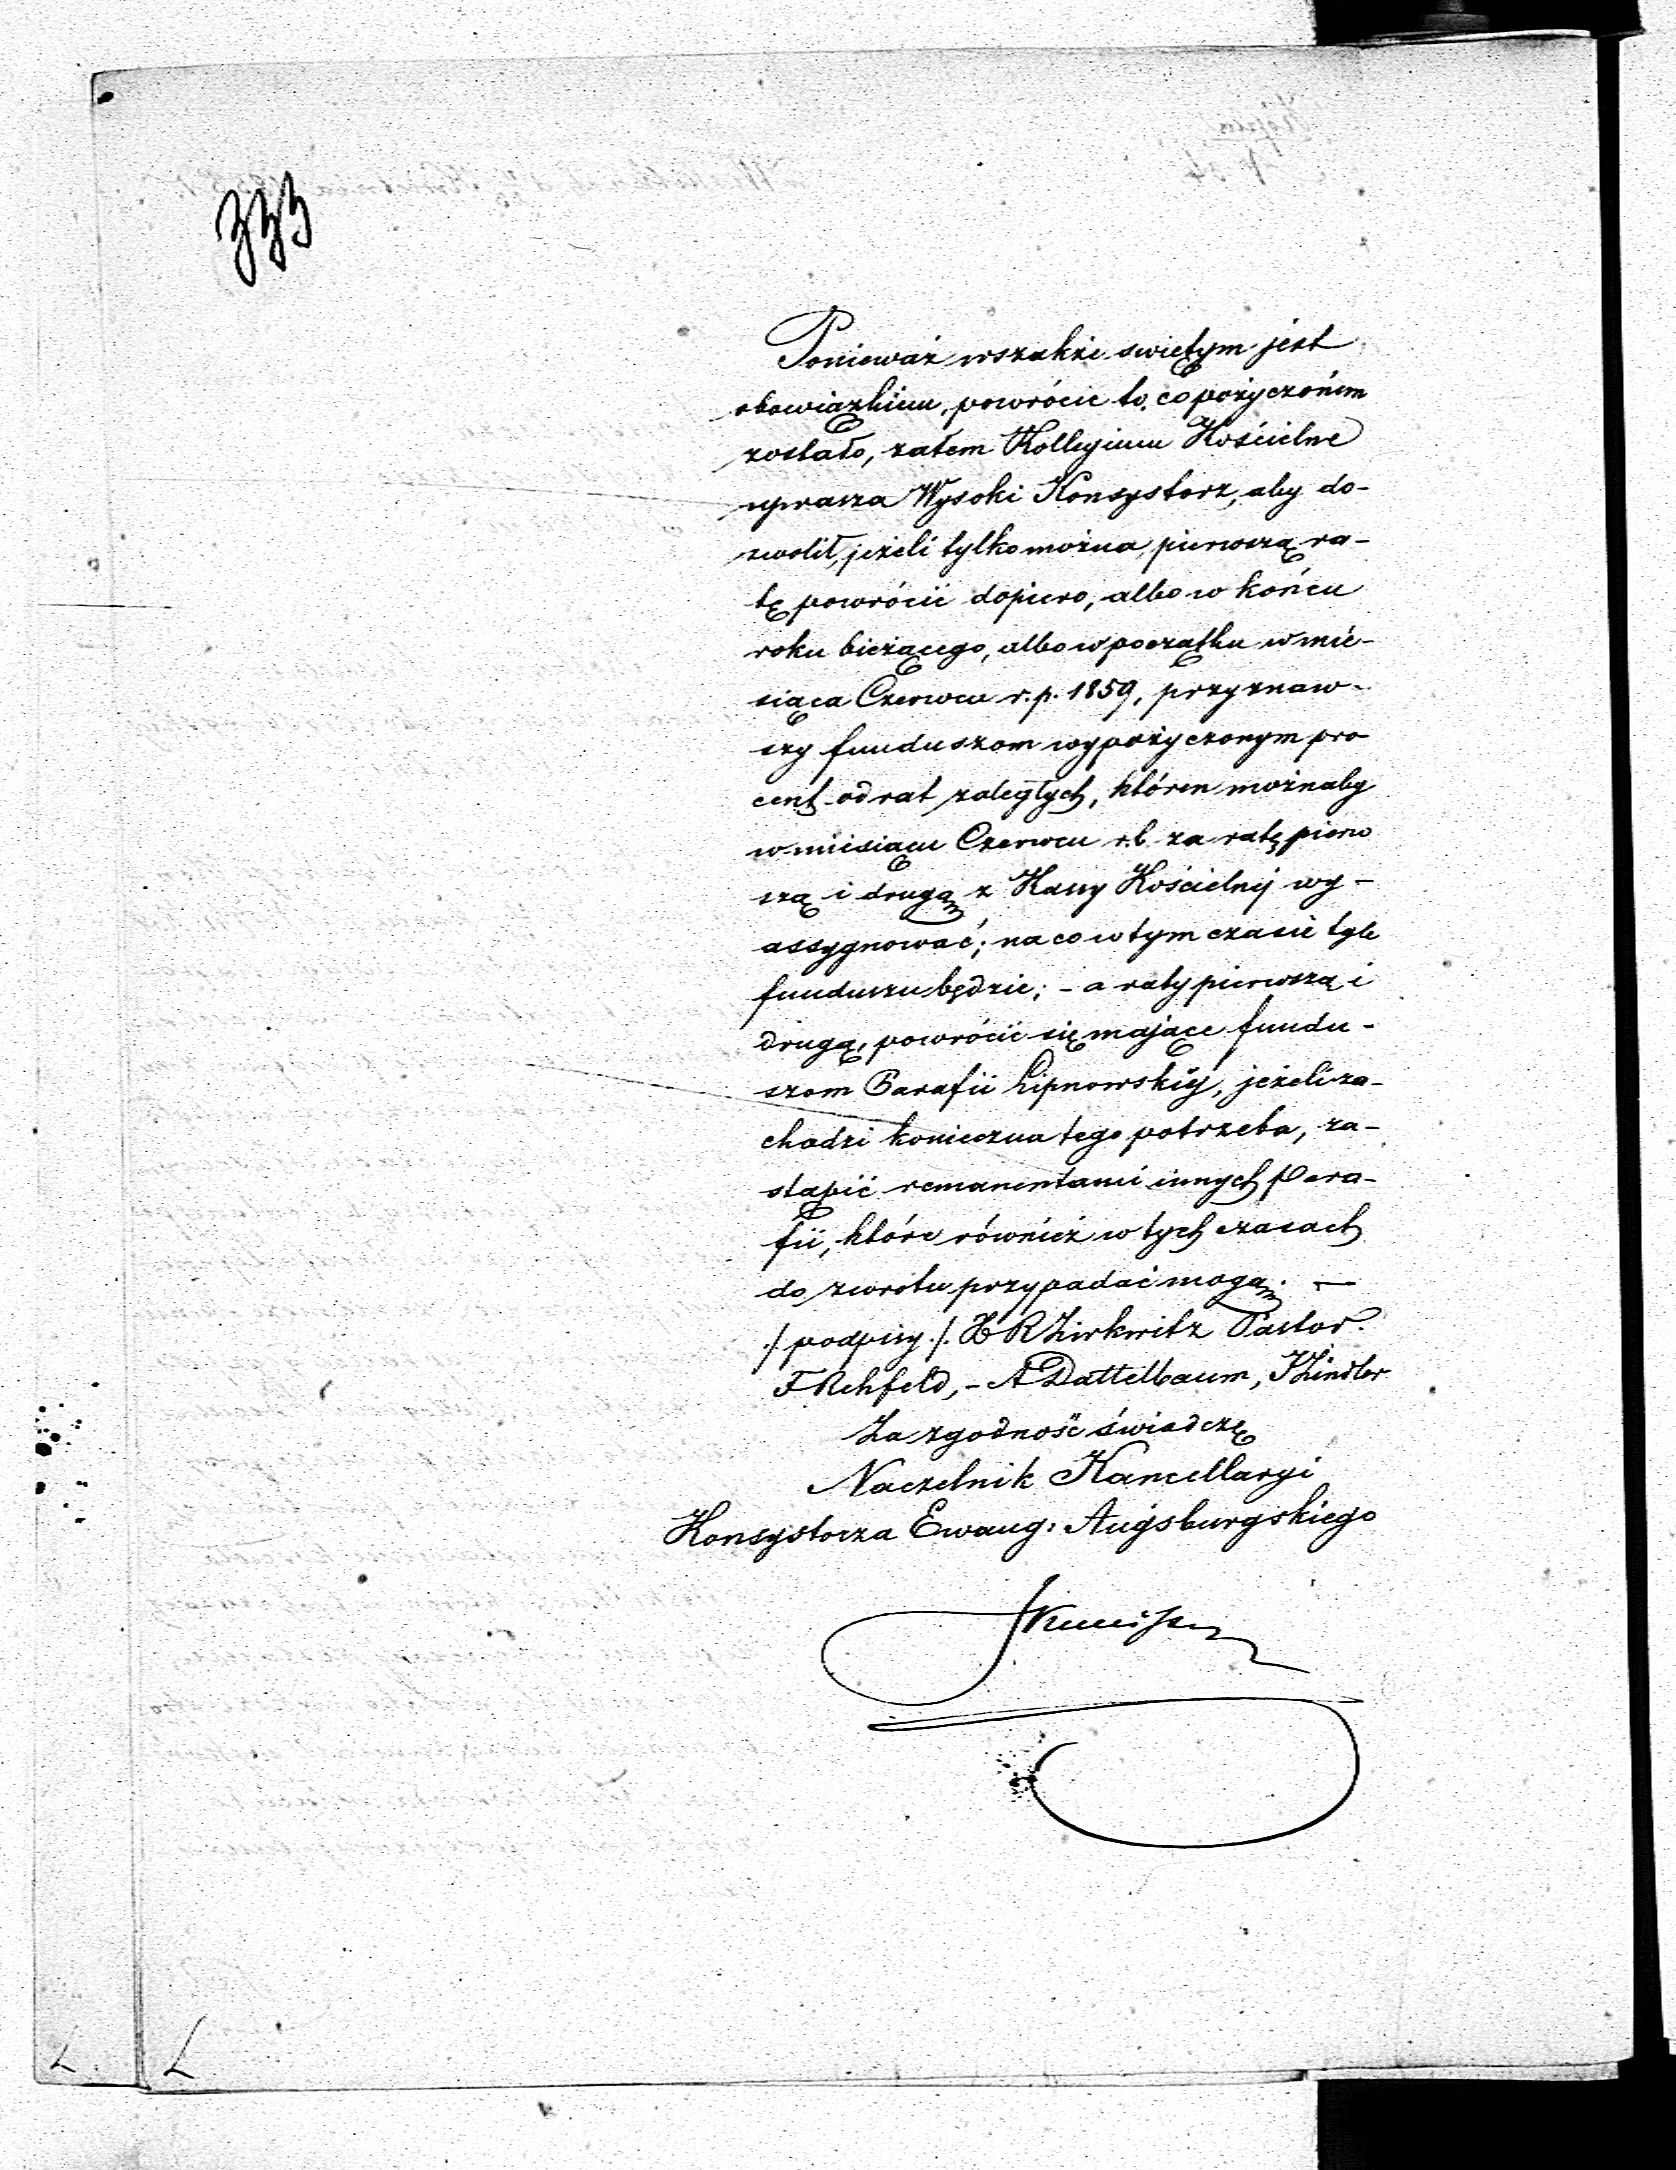 333
Ponieważ wszakże swiętym jest
obowiązkiem, powrócić to, co pożyczoném
zostało, zatem Kollegium Kościelne
uprasza Wysoki Konsystorz, aby do-
zwolił, jeżeli tylko można, pierwszą ra-
tę powrócić dopiero, albo w końcu
roku bieżącego, albo w początku w mie-
siąca Czerwcu r. p. 1859, przyznaw-
szy funduszom wypożyczonym pro
cent od rat zaległych, któren możnaby
w miesiącu Czerwcu r.b. za ratę pierw
szą i drugą z Kassy Kościelnéj wy-
assygnować; na co w tym czasie tyle
funduszu będzie; - a raty pierwszą i
drugą, powrócić się mające fundu-
szom Parafii Lipnowskiéj, jeżeli za-
chodzi konieczna tego potrzeba, za-
stąpić remanentami innych Para-
fii, które również w tych czasach
do zwrotu przypadać mogą. —
./ podpisy ./. H R Zirkwitz Pastor.
F Rehfeld, - A Dattelbaum, K Lindler
Za zgodność świadczę
Naczelnik Kancellaryi
Konsystorza Ewang: Augsburgskiego